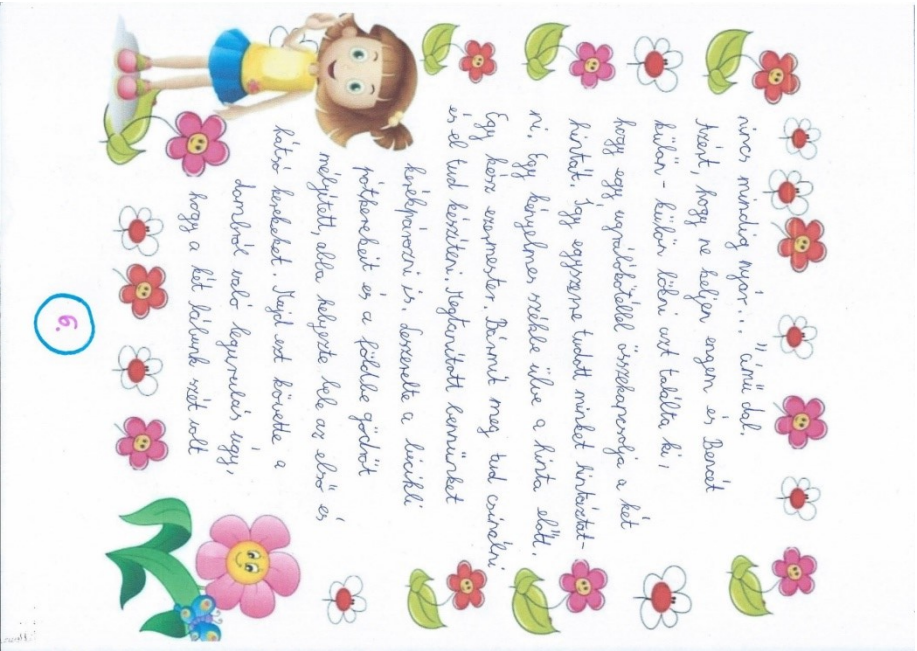 nincs mindig nyár... " című dal.
Azért, hogy ne keljen engem és Bencét
külön - külön lökni azt találta ki,
hogy egy ugrálókötéllel összekapcsolja a két
hintát. Így egyszerre tudott minket hintáztat-
ni. Egy kényelmes székbe ülve a hinta előtt.
Egy kész ezermester. Bármit meg tud csinálni
és el tud készíteni. Megtanított bennünket
kerékpározni is. Leszerelte a bicikli
pótkerekeit és a földbe gödröt
mélyített, abba helyezte bele az első és
hátsó kerekeket. Majd ezt követte a
dombról való legurulás úgy,
hogy a két lábunk szét volt
6.